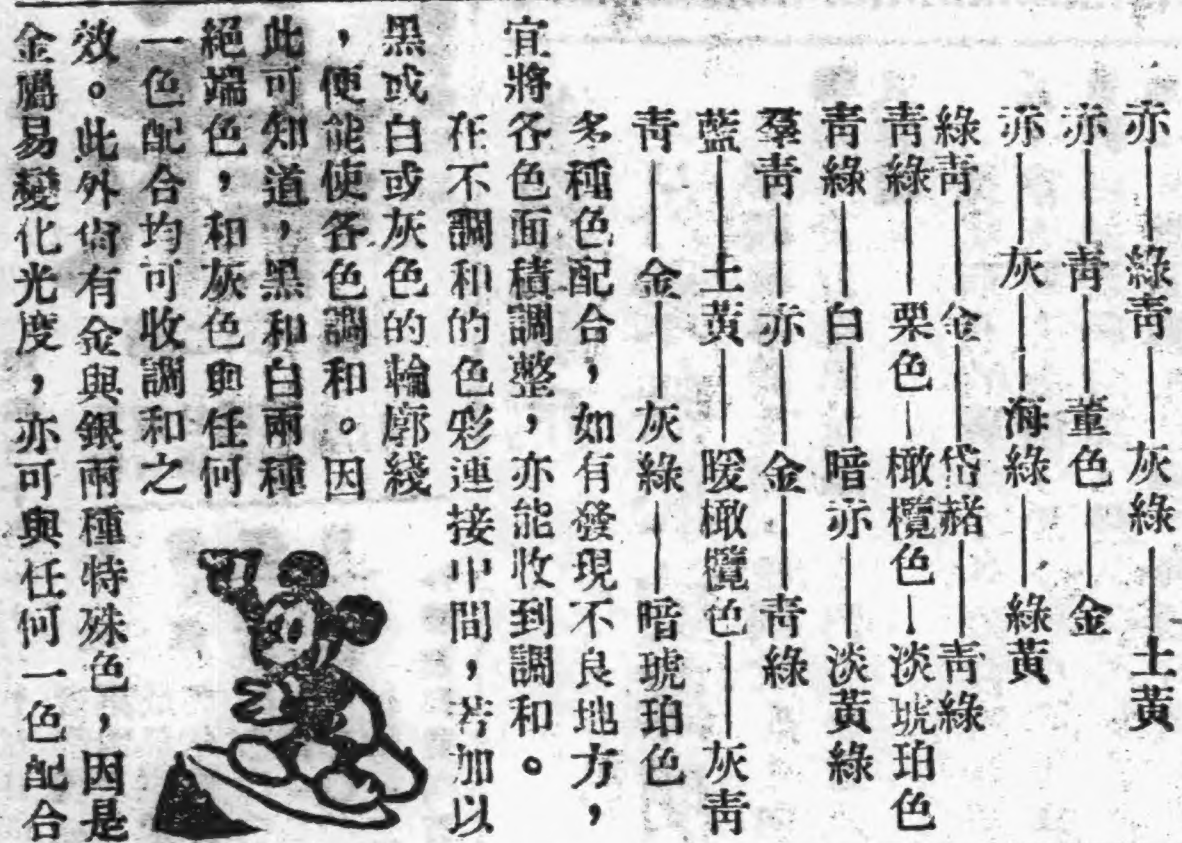 赤——綠青——灰綠——土黃
赤——青——菫色——金
赤——灰——海綠——綠黃
綠青——金——岱赭——青綠
青綠——栗色—橄欖色—淡琥珀色
青綠——白——暗赤——淡黃綠
羣青——赤——金——青綠
藍——土黃——暖橄欖色——灰青
青——金——灰綠——暗琥珀色
多種色配合，如有發現不良地方，
宜將各色面積調整，亦能收到調和。
在不調和的色彩連接中間，若加以
黑或白或灰色的輪廓綫
，便能使各色調和。因
此可知道，黑和白兩種
絕端色，和灰色與任何
一色配合均可收調和之
效。此外尚有金與銀兩種特殊色，因是
金屬易變化光度，亦可與任何一色配合